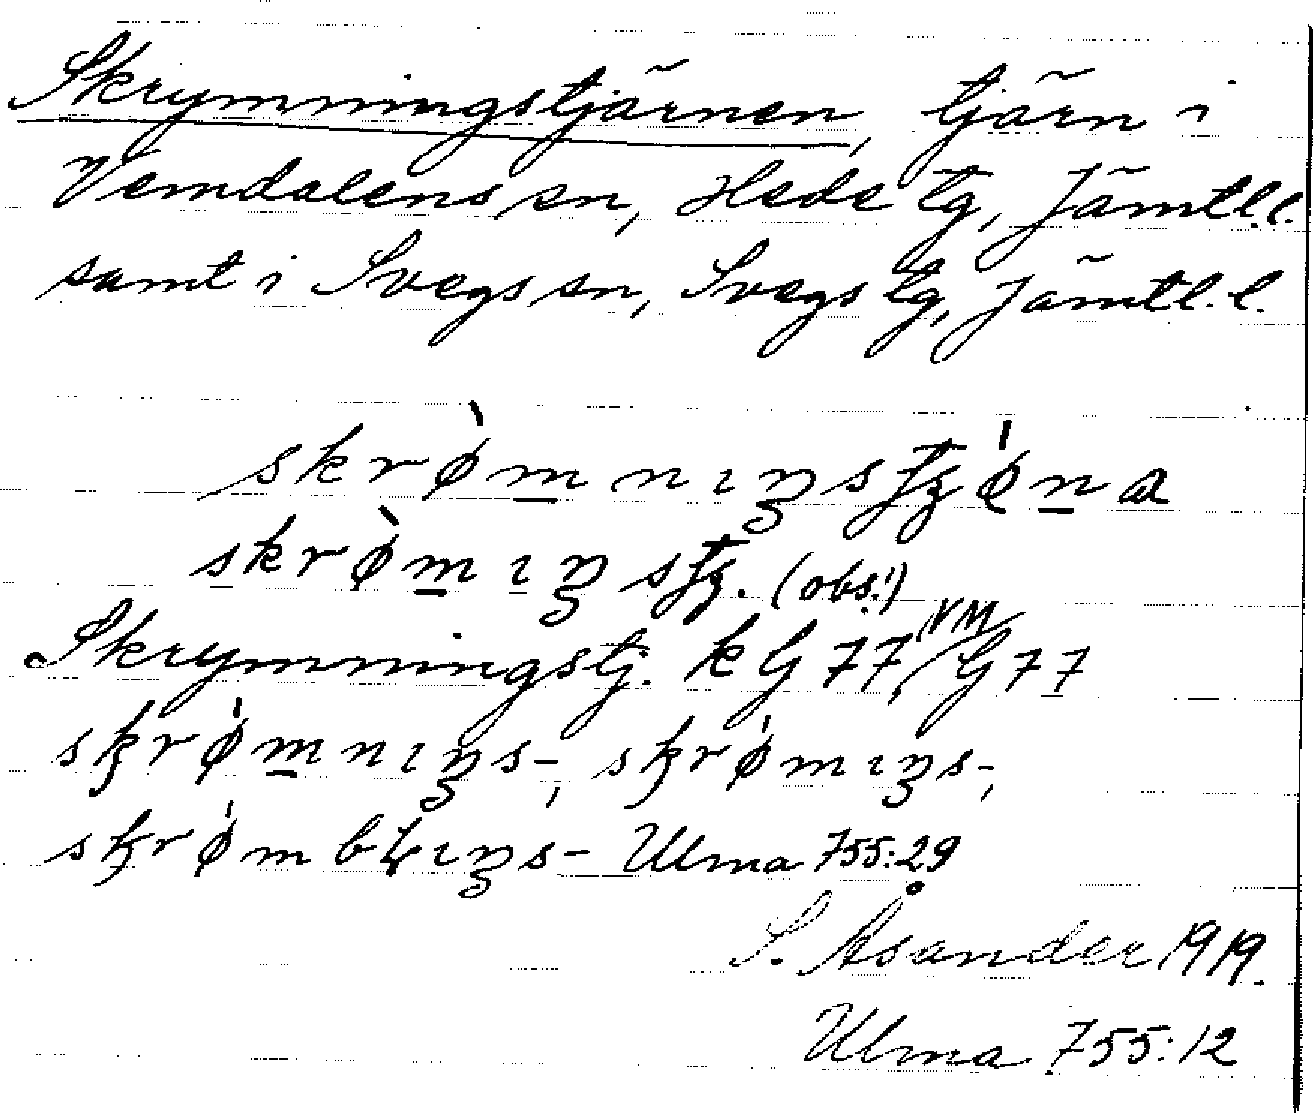 Skrymningstjärnen, tjärn i
Vemdalens sn, Hede tg, Jämtl.l.
samt i Svegs sn, Svegs tg, Jämtl.l.
skrø̀mnıŋstʒø̀na
skrø̀mıŋstʒ. (obs.!)
Skrymningstj. k G 77, VM G 77
skrømnıŋs-, skrømıŋs-,
skrømblıŋs- Ulma 755:29
S. Åsander 1919.
Ulma 755:12